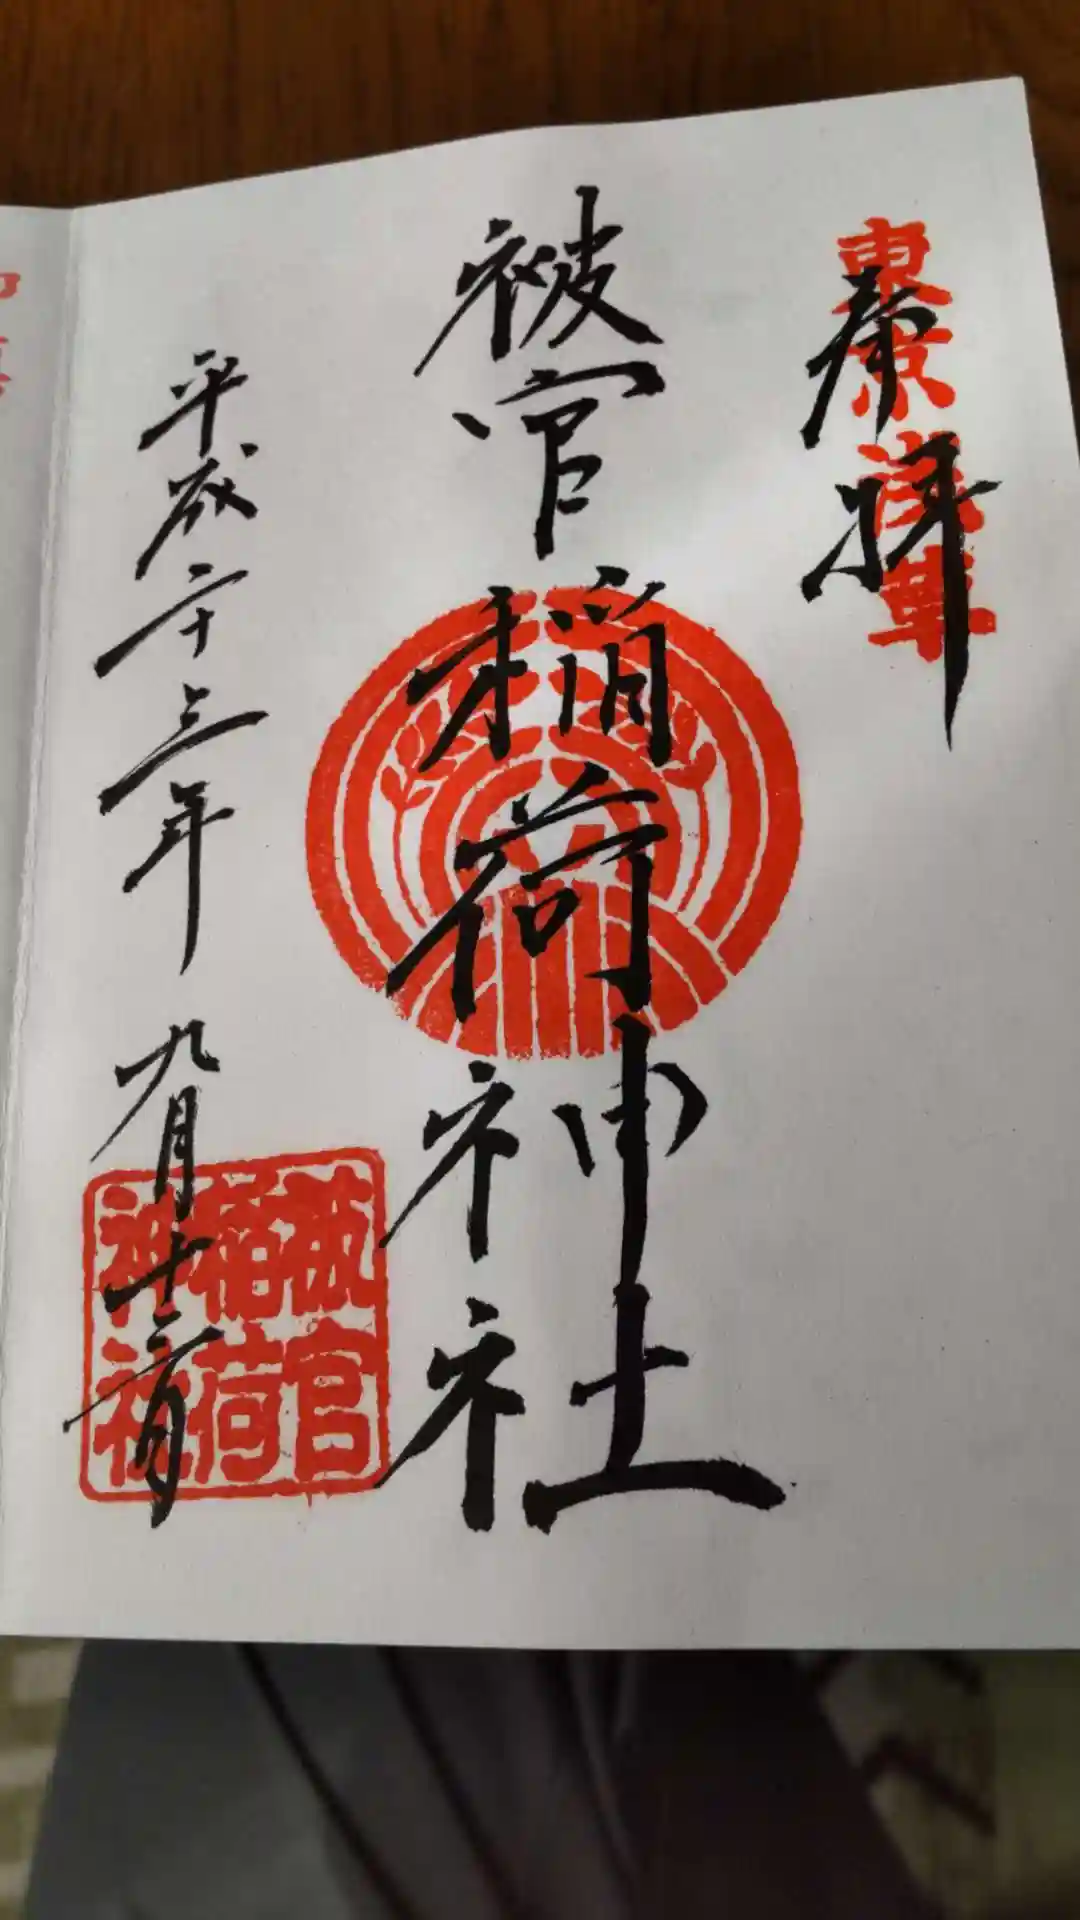 東京浅草
奉拝
被官稲荷神社
平成二十三年 九月十二日
被官
稲荷
神社